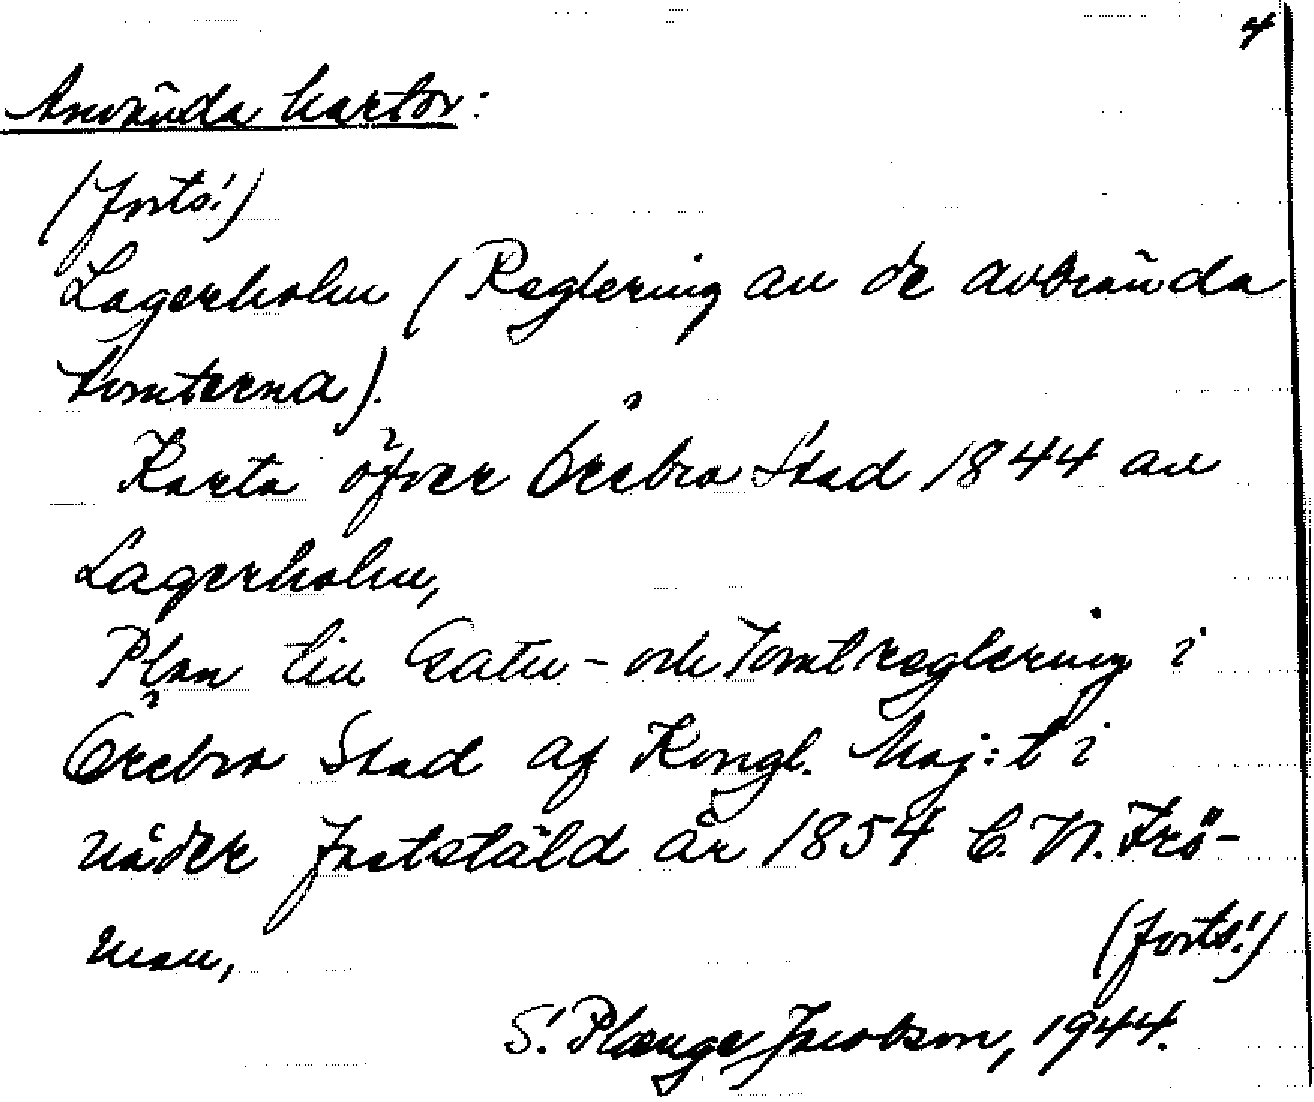 4
Använda kartor:
(forts.)
Lagerholm (Reglering av de avbrända
tomterna).
Karta öfver Örebro Stad 1844 av
Lagerholm,
Plan till Gatu- och Tomtreglering i
Örebro Stad af Kongl. Maj:t i
nåder fastställd år 1854 C. N. Frö-
man,
(forts.)
S. Plænge Jacobson, 1944.